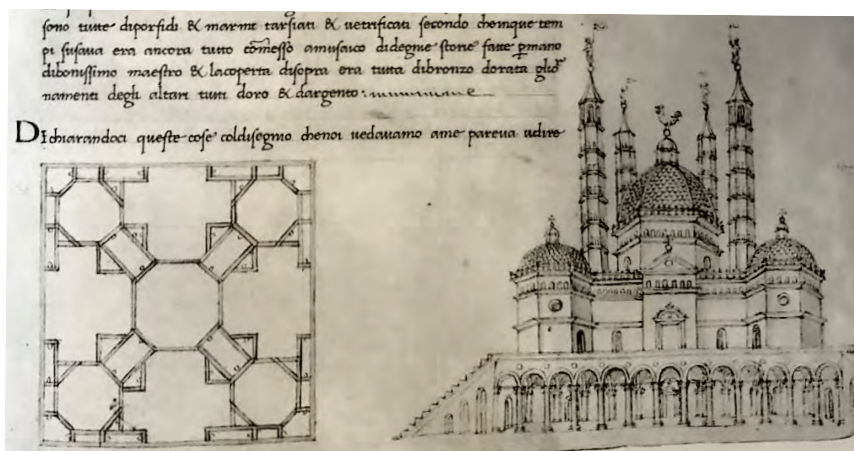 sono tutte diporfidi & marmi tarsiati & uetrificati secondo cheinque tem
pi susaua era ancora tutto cōmesso amusaico didegne storie fatte ꝑmano
dibonissimo maestro & lacoperta disopra era tutta dibronzo dorata
namenti degli altari tutti doro & dargento
DIchiarandoci queste cose coldisegnio chenoi uedauamo ame pareua udire